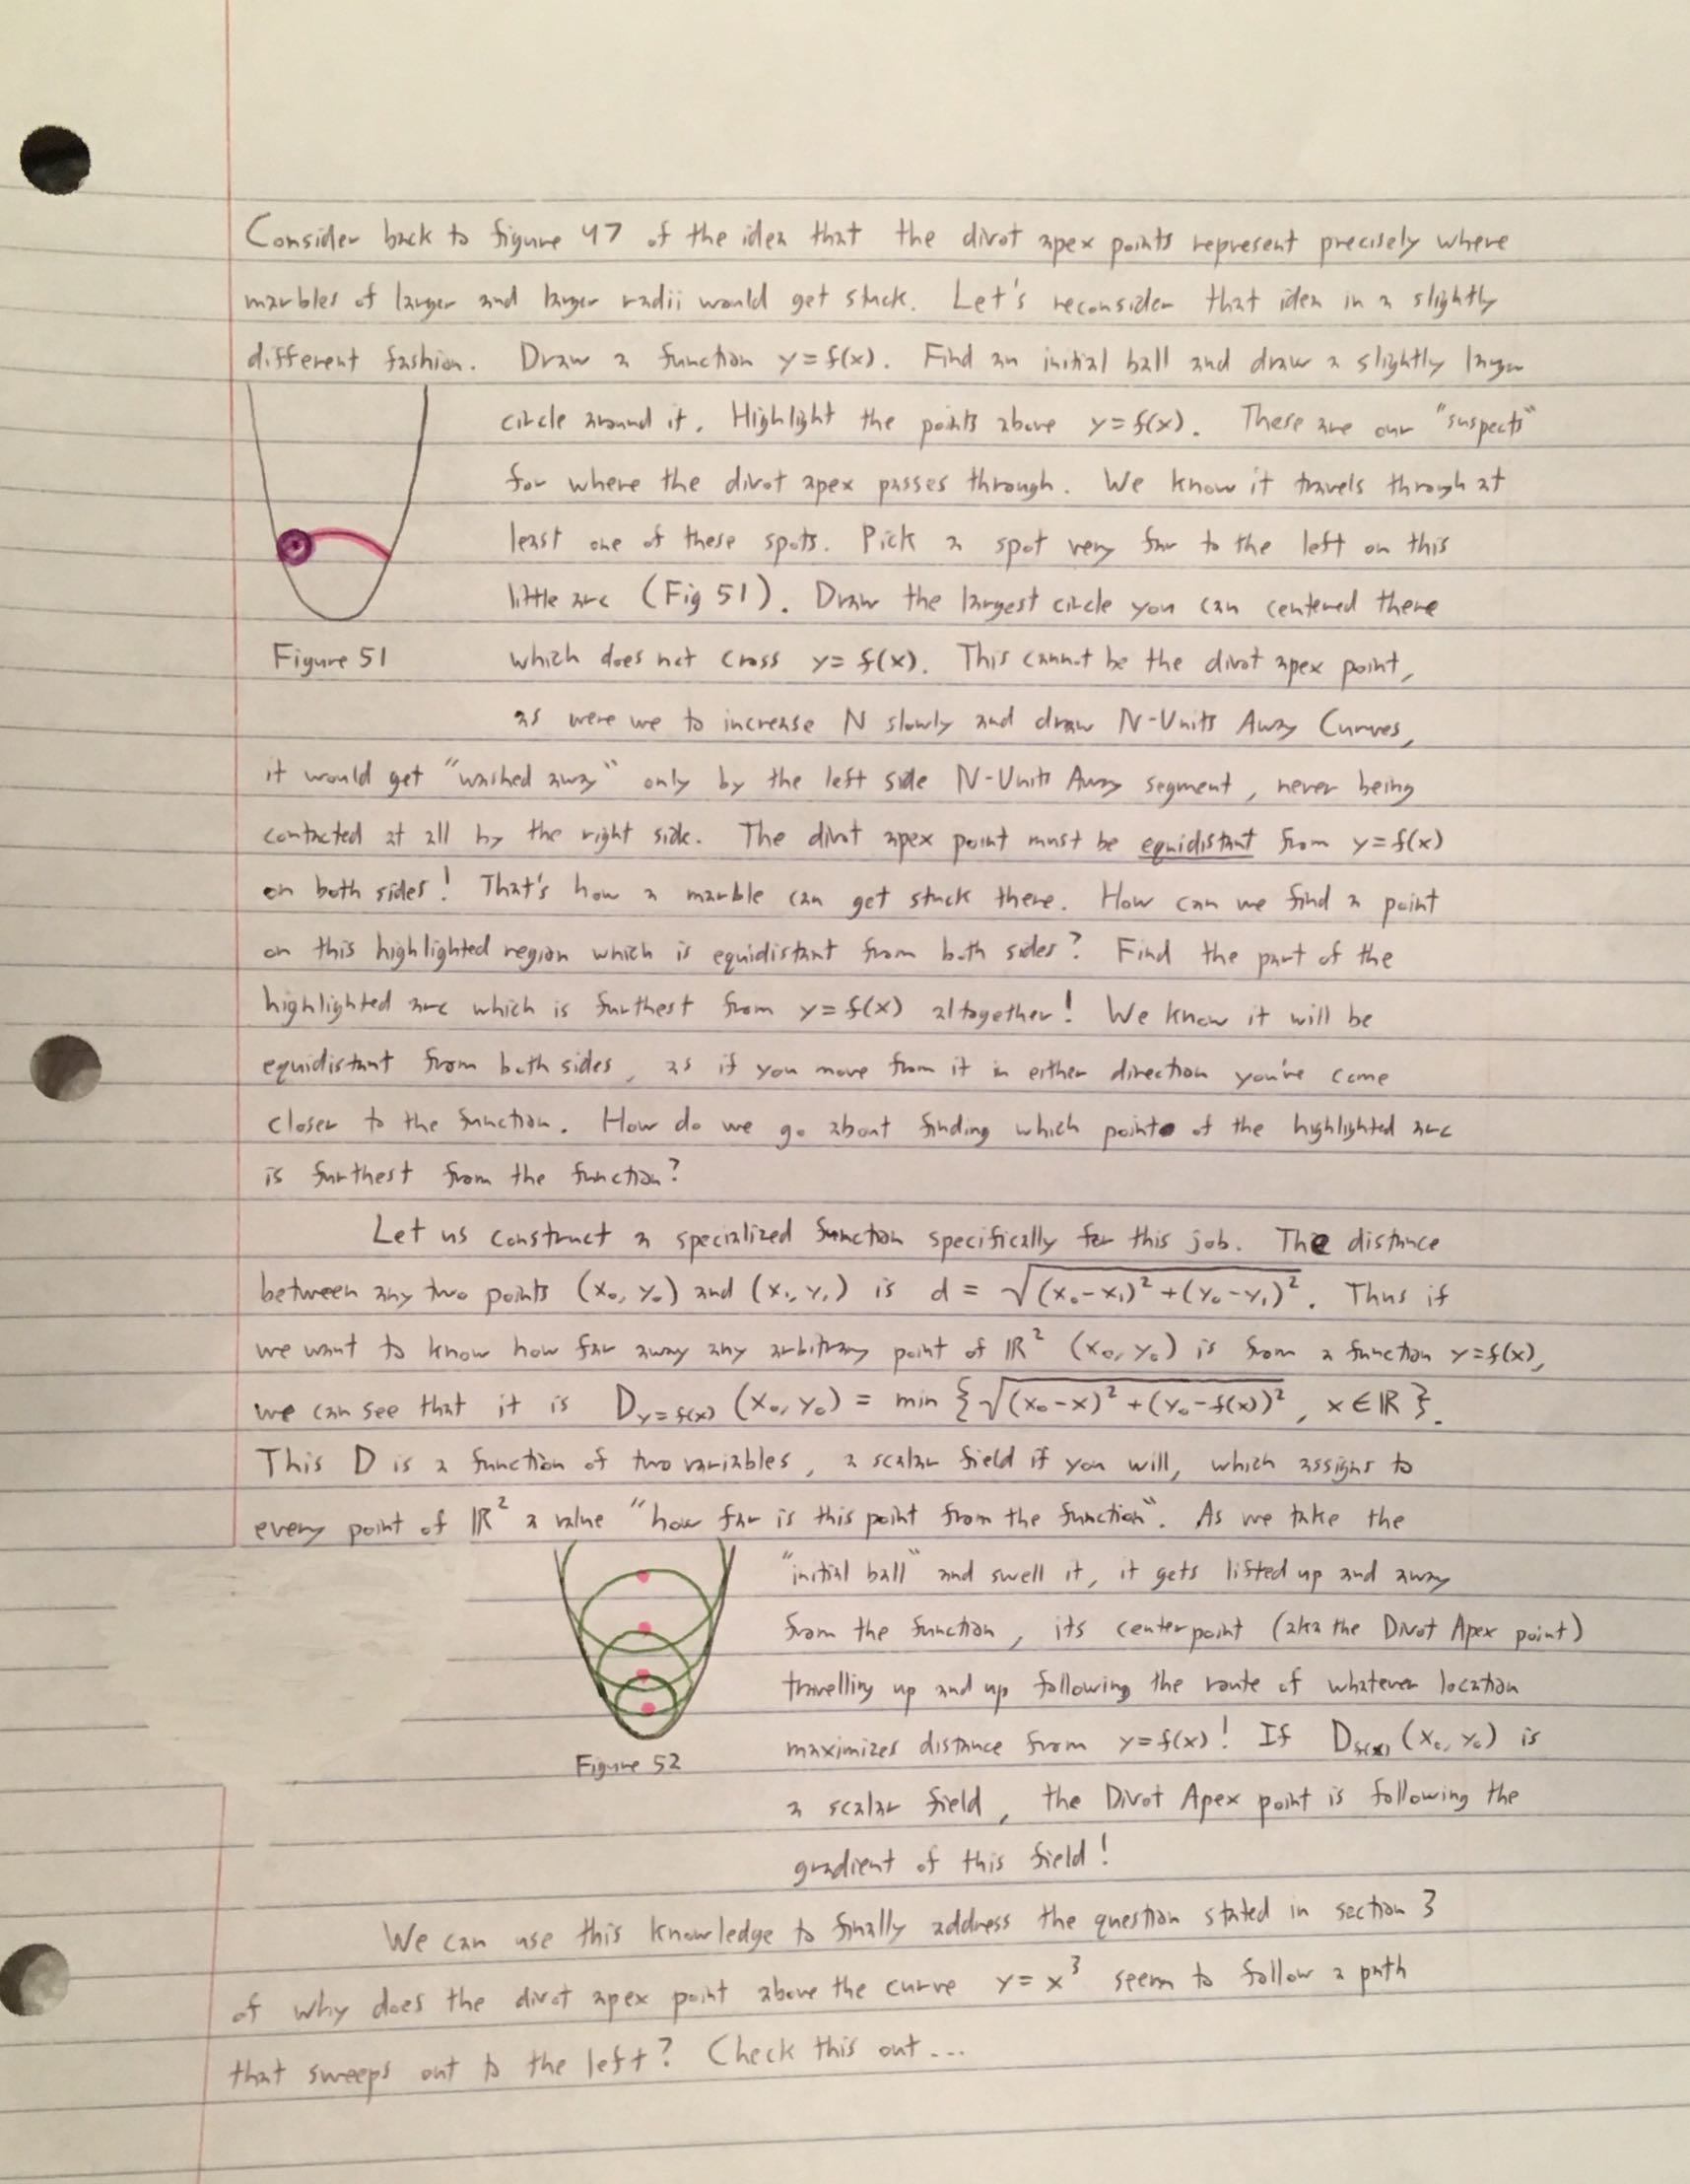 Consider back to figure 47 of the idea that the divot apex points represent precisely where
marbles of larger and larger radii would get stuck. Let's reconsider that idea in a slightly
different fashion. Draw a function y=f(x). Find an initial ball and draw a slightly larger
circle around it. Highlight the points above y=f(x). These are our "suspects"
for where the divot apex passes through. We know it travels through at
least one of these spots. Pick a spot very far to the left on this
little arc (Fig 51). Draw the largest circle you can centered there
Figure 51
which does not cross y=f(x). This cannot be the divot apex point,
as were we to increase N slowly and draw N-Units Away Curves,
it would get "washed away" only by the left side N-Units Away segment, never being
contacted at all by the right side. The divot apex point must be equidistant from y=f(x)
on both sides! That's how a marble can get stuck there. How can we find a point
on this highlighted region which is equidistant from both sides? Find the part of the
highlighted arc which is furthest from y=f(x) altogether! We know it will be
equidistant from both sides, as if you move from it in either direction you've come
closer to the function. How do we go about finding which point of the highlighted arc
is furthest from the function?
Let us construct a specialized function specifically for this job. The distance
between any two points (x₀, y₀) and (x₁, y₁) is d = √((x₀-x₁)²+(y₀-y₁)²). Thus if
we want to know how far away any arbitrary point of ℝ² (x₀, y₀) is from a function y=f(x),
we can see that it is D_{y=f(x)} (x₀, y₀) = min {√((x₀-x)²+(y₀-f(x))²), x∈ℝ}.
This D is a function of two variables, a scalar field if you will, which assigns to
every point of ℝ² a value "how far is this point from the function". As we take the
"initial ball" and swell it, it gets lifted up and away
from the function, its center point (aka the Divot Apex point)
travelling up and up following the route of whatever location
maximizes distance from y=f(x)! If D_{f(x)} (x₀, y₀) is
Figure 52
a scalar field, the Divot Apex point is following the
gradient of this field!
We can use this knowledge to finally address the question stated in section 3
of why does the divot apex point above the curve y=x³ seem to follow a path
that sweeps out to the left? Check this out...